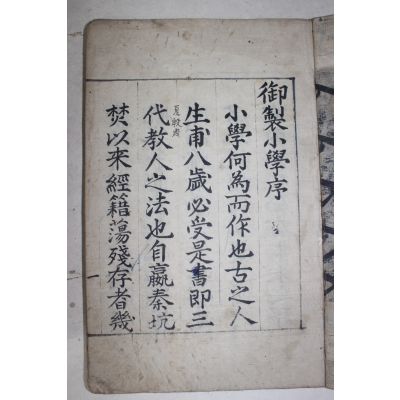 御製小學序
小學何為而作也古之人
生甫八歲必受是書即三
夏殷周
代教人之法也自嬴秦坑
焚以來經籍蕩殘存者幾